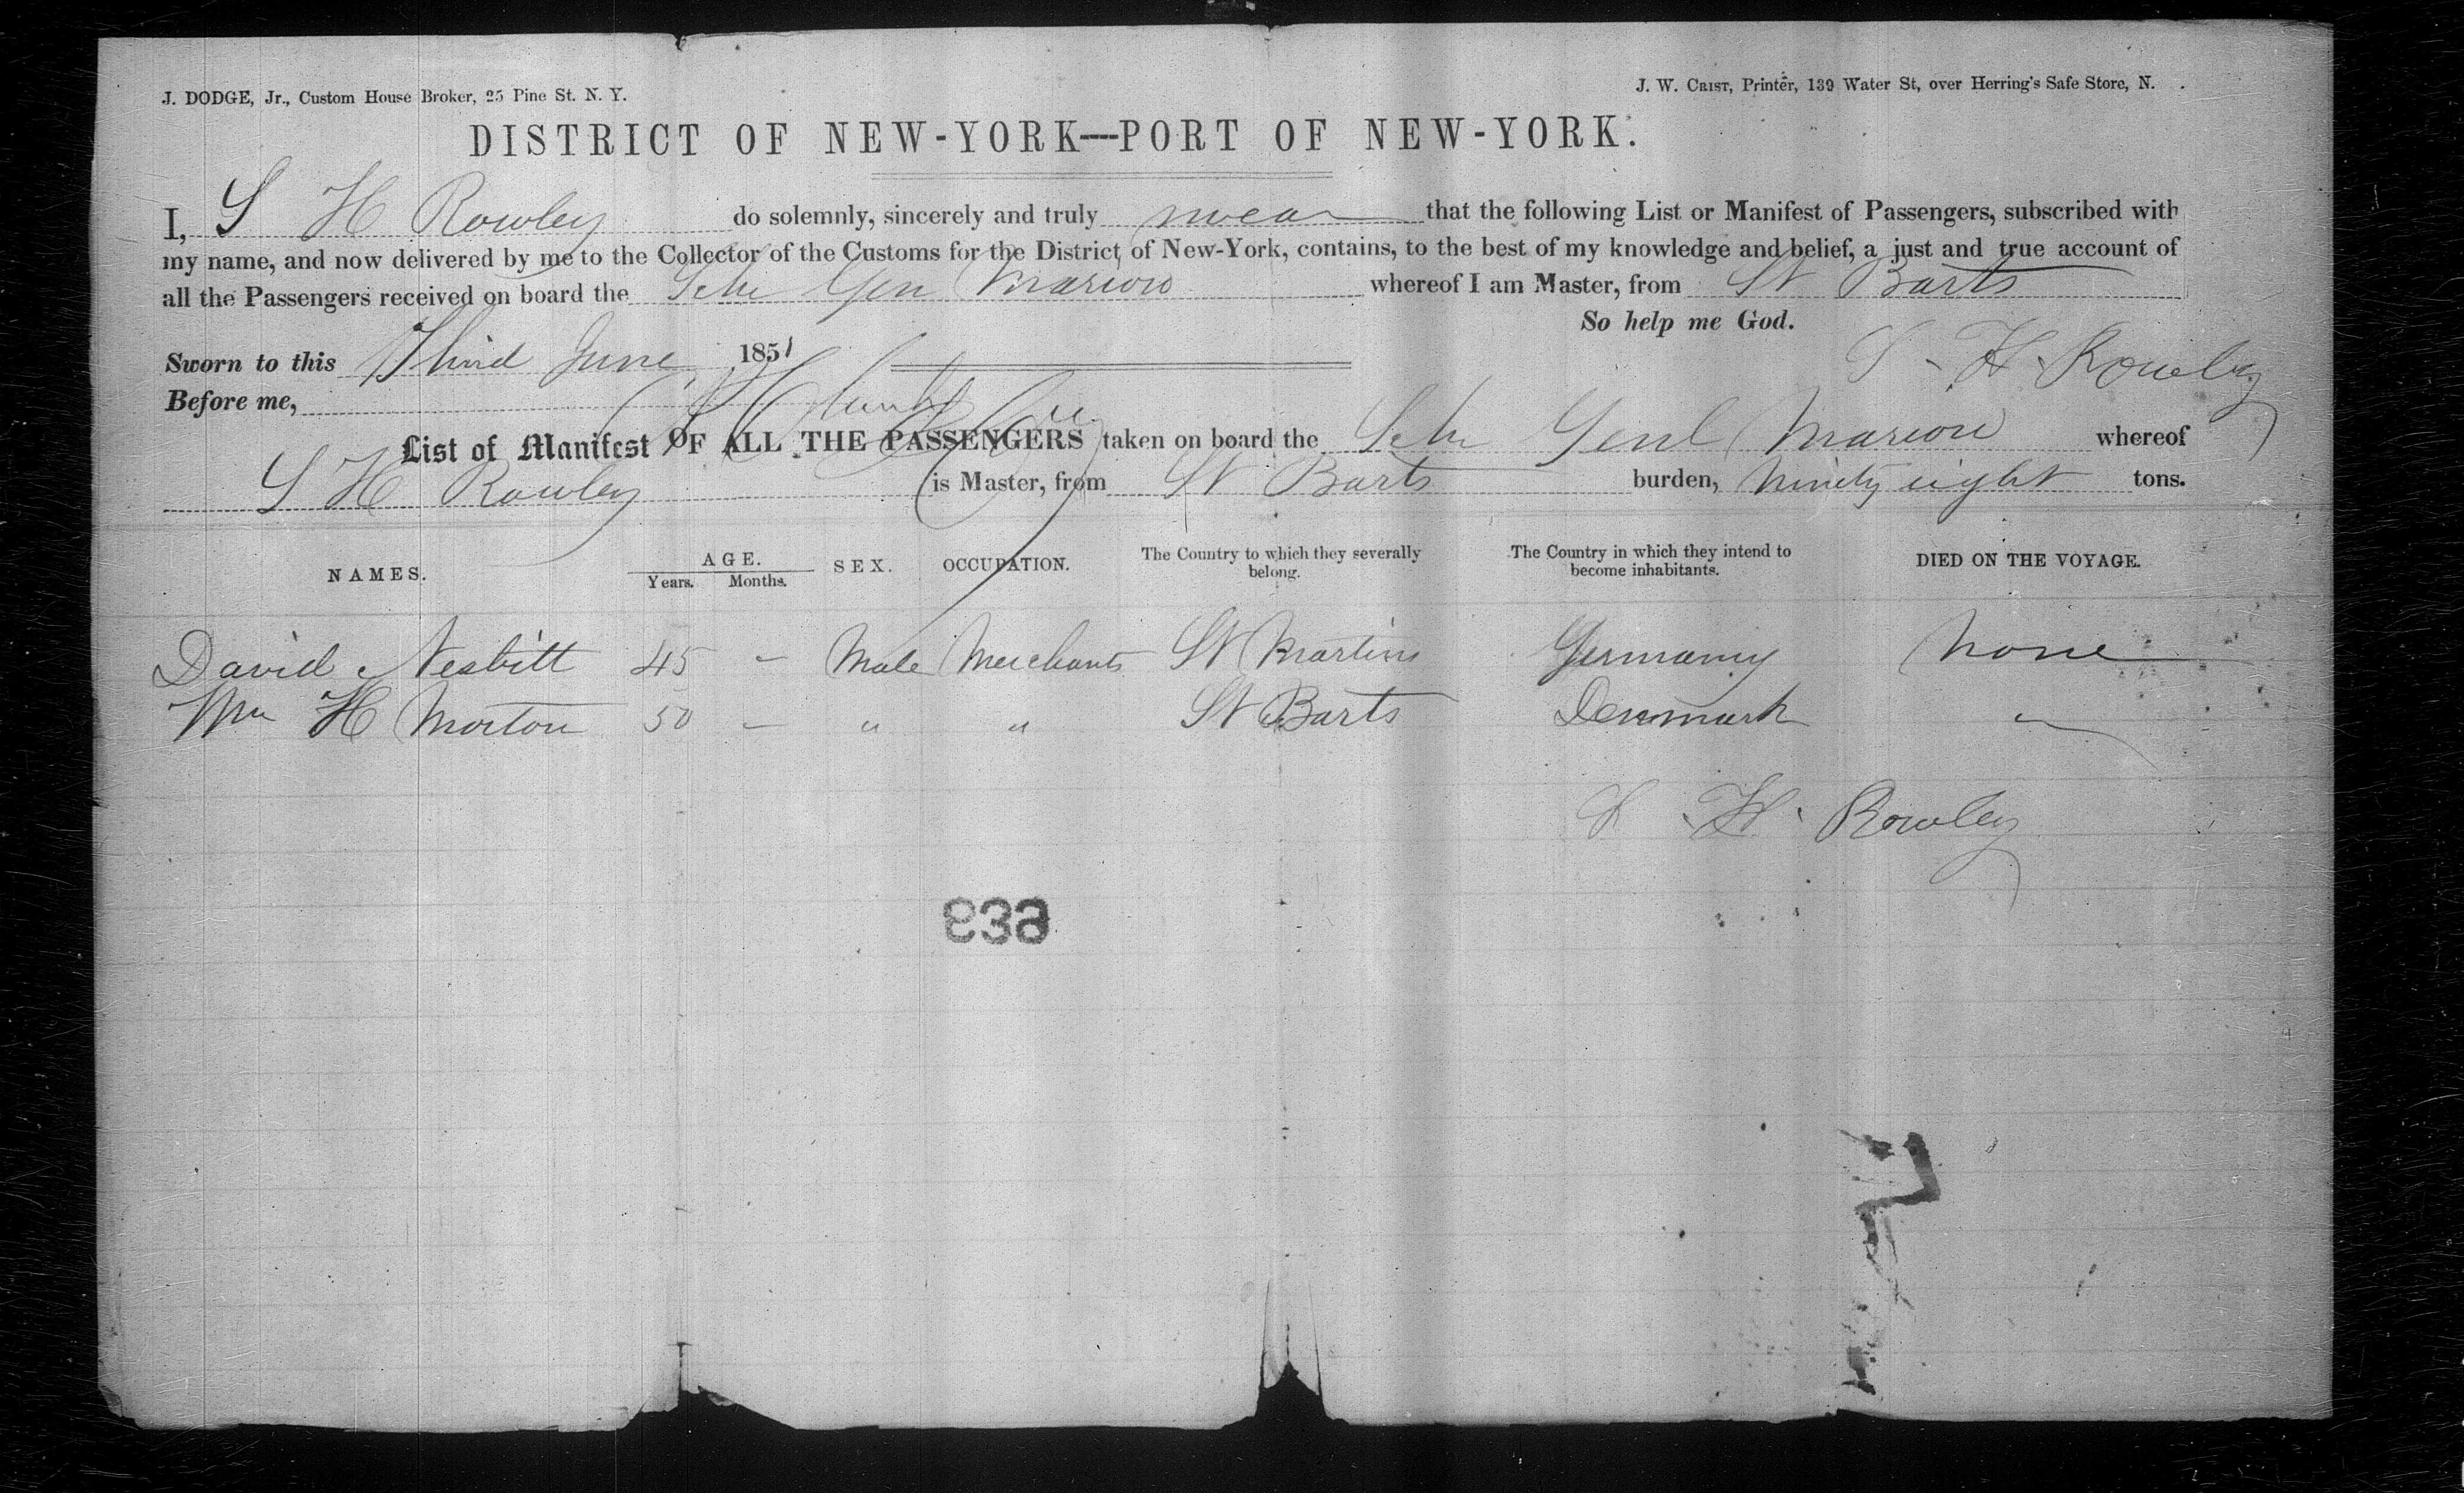 J. DODGE, Jr., Custom House Broker, 25 Pine St. N. Y.
J. W. CRIST, Printer, 139 Water St, over Herring's Safe Store, N.
DISTRICT OF NEW-YORK—PORT OF NEW-YORK.
I, S H Rowley do solemnly, sincerely and truly swear that the following List or Manifest of Passengers, subscribed with
my name, and now delivered by me to the Collector of the Customs for the District of New-York, contains, to the best of my knowledge and belief, a just and true account of
all the Passengers received on board the Schr Gen Marion whereof I am Master, from St Barts
So help me God.
Sworn to this Third June 1851
S. H. Rowley
Before me,
List of Manifest OF ALL THE PASSENGERS taken on board the Schr Genl Marion whereof
S H Rowley is Master, from St Barts burden, Ninety eight tons.
NAMES. AGE. Years. Months. SEX. OCCUPATION. The Country to which they severally belong. The Country in which they intend to become inhabitants. DIED ON THE VOYAGE.
David Nesbitt 45 – Male Merchants St Martins Germany None
Wm H Morton 50 – " " St Barts Denmark "
S. H. Rowley
639